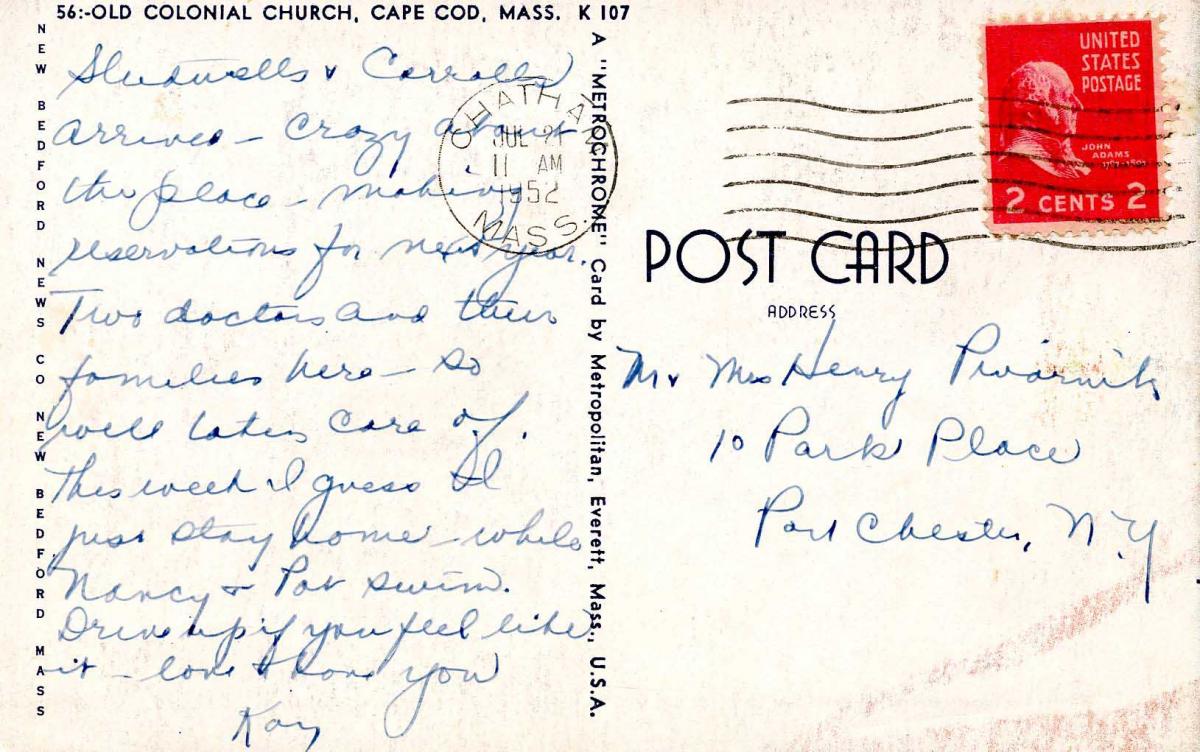 56:-OLD COLONIAL CHURCH, CAPE COD, MASS. K 107
NEW BEDFORD NEWS CO NEW BEDFORD MASS
Carrolls
arrived - crazy about
the place - making
reservations for next year.
Two doctors and their
families here - so
well taken care of.
This week I guess I'll
just stay home - while
Nancy & Pat swim.
Drive up if you feel like
it - love to have you
Kay
A "METROCHROME" Card by Metropolitan, Everett, Mass., U.S.A.
CHATHAM
JUL 21
11 AM
1952
MASS.
UNITED
STATES
POSTAGE
JOHN
ADAMS
2 CENTS 2
POST CARD
ADDRESS
Mr & Mrs Henry Piwarnik
10 Park Place
Port Chester, N.Y